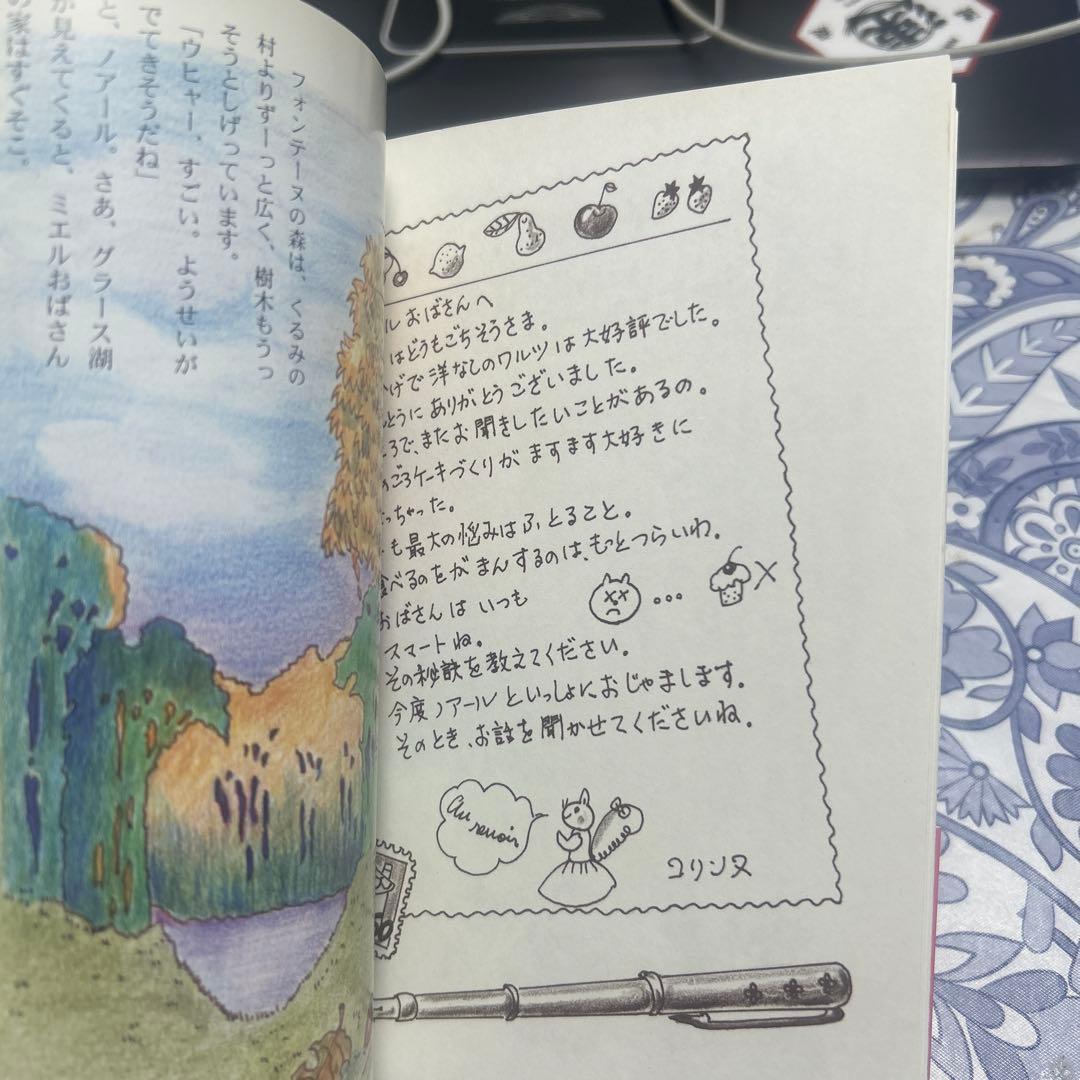 フォンテーヌの森は、くるみの
村よりずーっと広く、樹木もうっ
そうとしげっています。
「ウヒャー、すごい。ようせいが
でてきそうだね」
と、ノアール。さあ、グラース湖
が見えてくると、ミエルおばさん
の家はすぐそこ。
ル おばさんへ
はどうもごちそうさま。
かげで洋なしのワルツは大好評でした。
んとうにありがとうございました。
ころで、またお聞きしたいことがあるの。
のごろケーキづくりがますます大好きに
なっちゃった。
も最大の悩みはふとること。
食べるのをがまんするのは、もっとつらいわ。
おばさんはいつも
スマートね。
その秘訣を教えてください。
今度ノアールといっしょにおじゃまします。
そのとき、お話を聞かせてくださいね。
Au revoir
コリンヌ